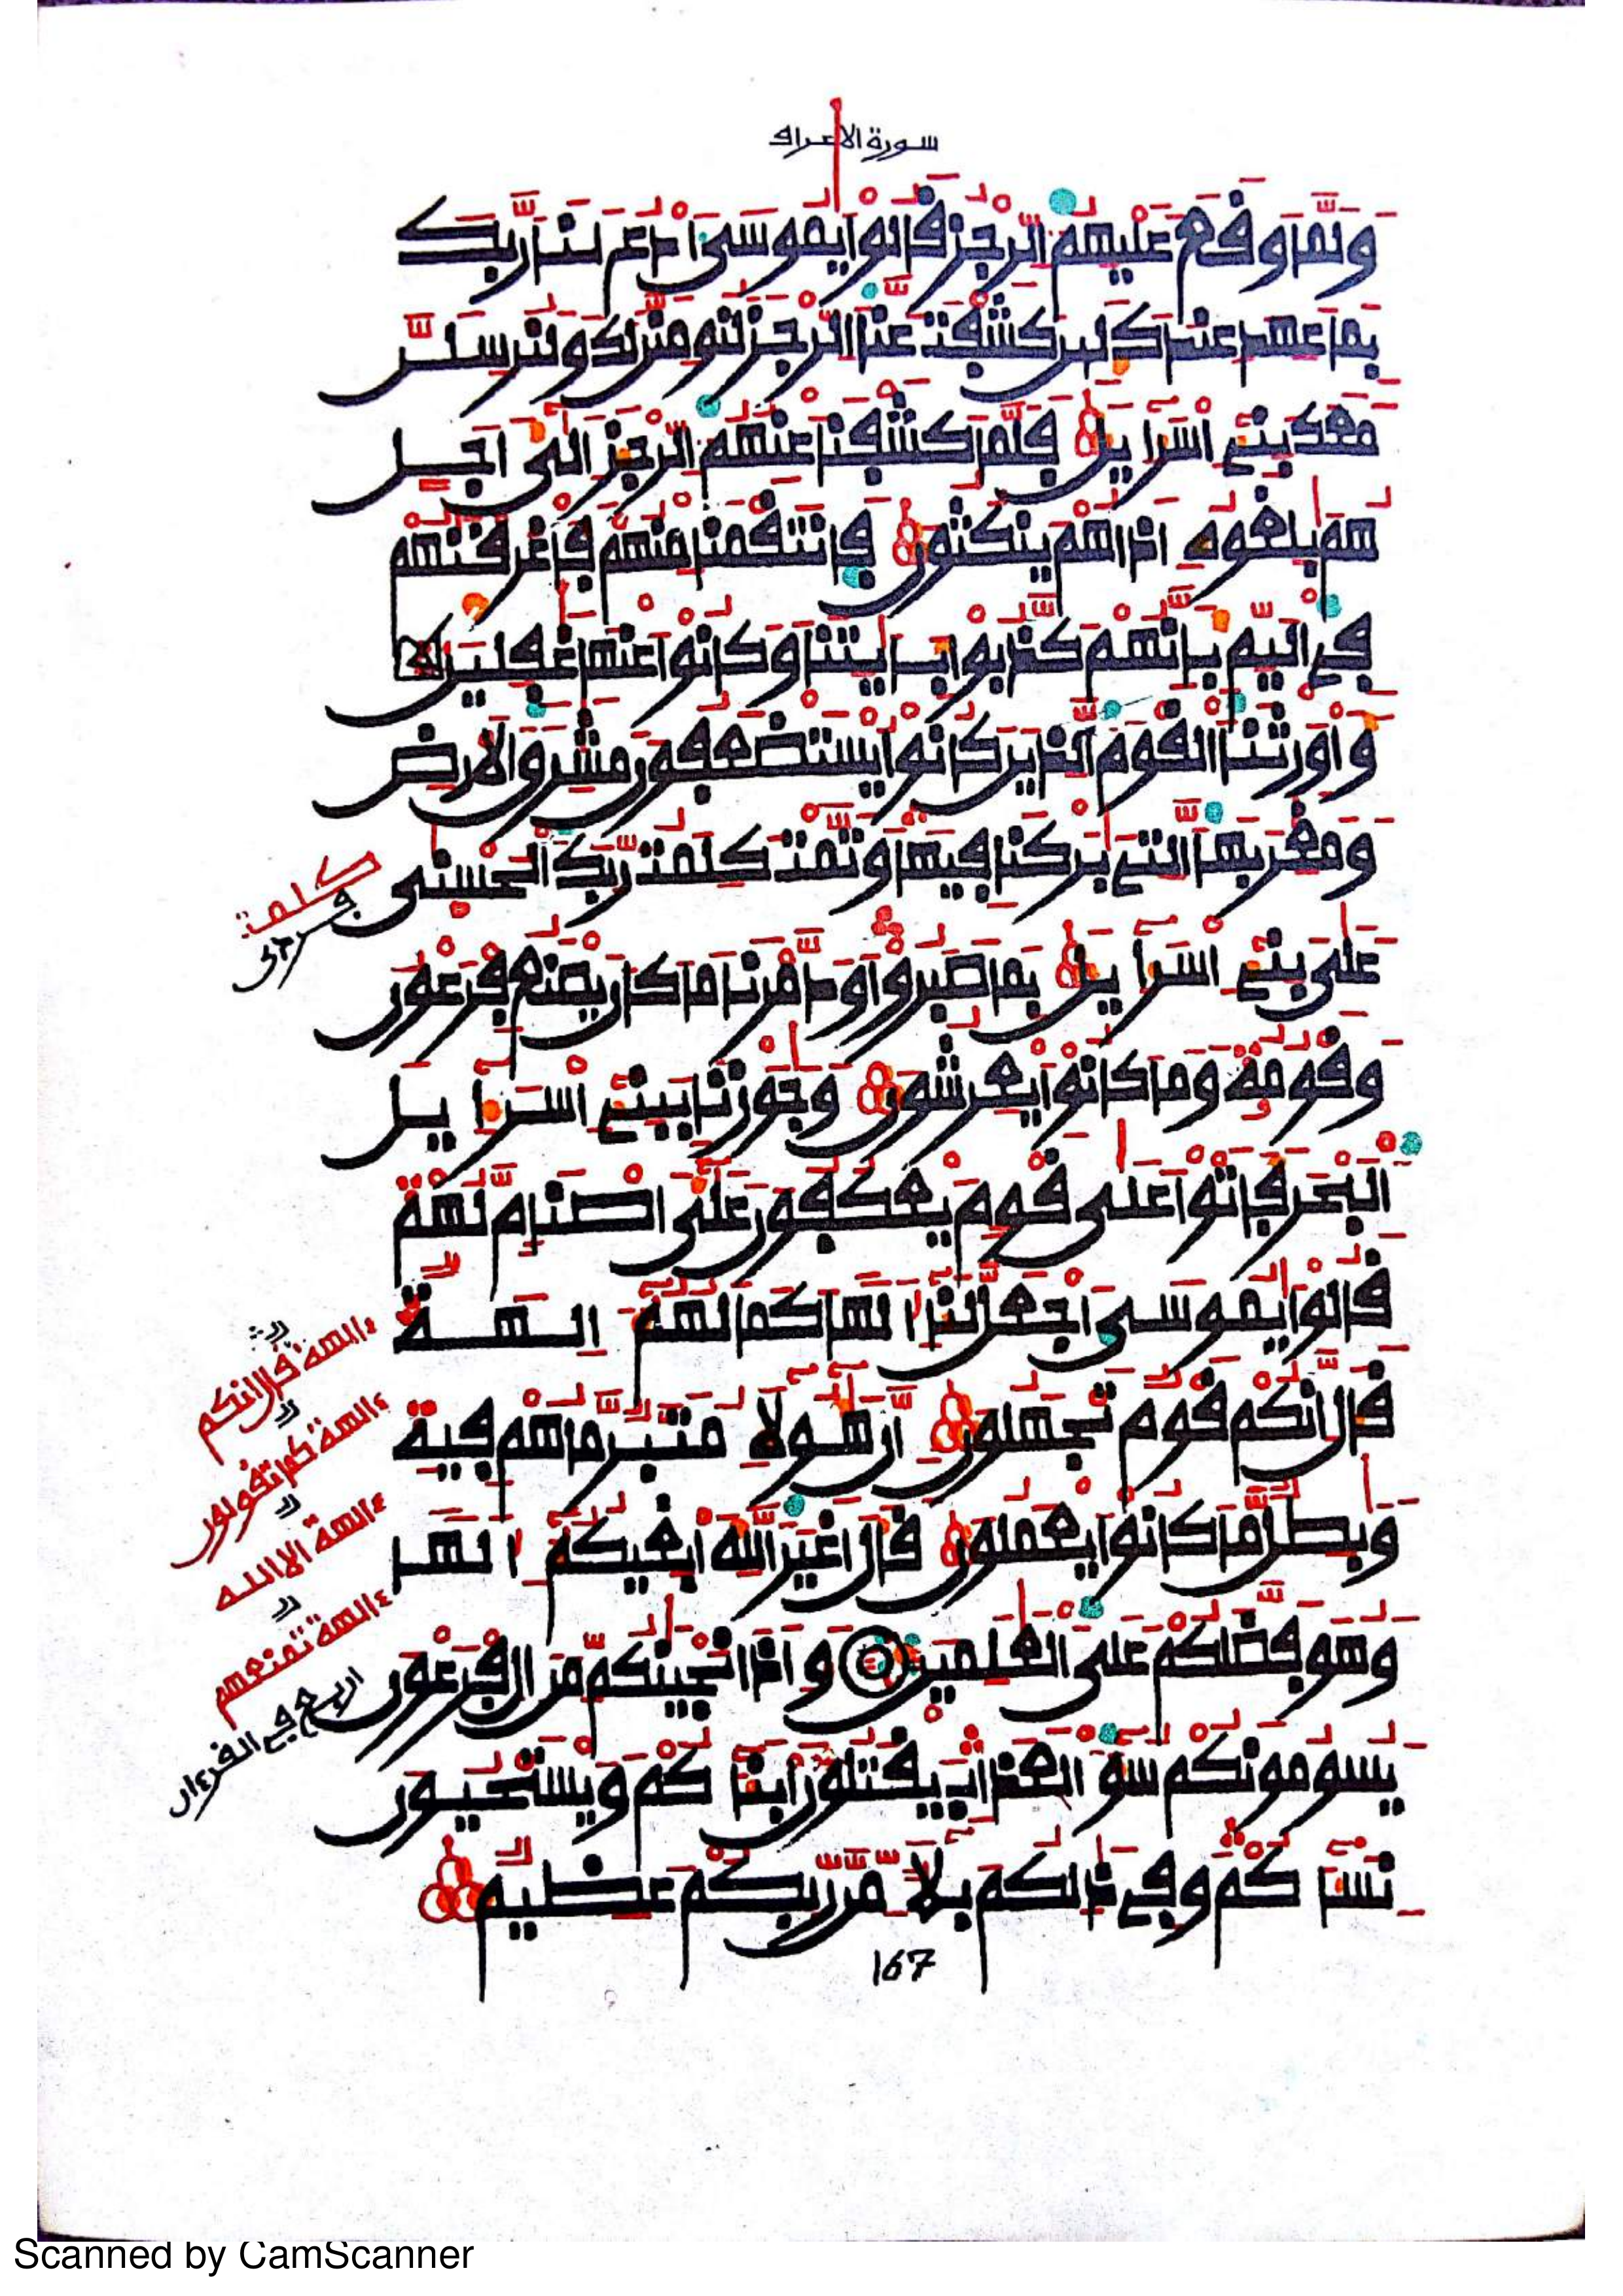 سورة الاعراف
وَلَمَّا وَقَعَ عَلَيْهِمُ الرِّجْزُ قَالُواْ يَٰمُوسَى اَدْعُ لَنَا رَبَّكَ
بِمَا عَهِدَ عِندَكَ لَئِن كَشَفْتَ عَنَّا الرِّجْزَ لَنُومِنَنَّ لَكَ وَلَنُرْسِلَنَّ
مَعَكَ بَنِے إِسْرَآءِيلَ فَلَمَّا كَشَفْنَا عَنْهُمُ الرِّجْزَ إِلَىٰ أَجَلٍ
هُم بَٰلِغُوهُ إِذَا هُمْ يَنكُثُونَ فَانتَقَمْنَا مِنْهُمْ فَأَغْرَقْنَٰهُمْ
فِے الْيَمِّ بِأَنَّهُمْ كَذَّبُواْ بِـَٔايَٰتِنَا وَكَانُواْ عَنْهَا غَٰفِلِينَ
وَأَوْرَثْنَا الْقَوْمَ الَّذِينَ كَانُواْ يُسْتَضْعَفُونَ مَشَٰرِقَ الَارْضِ
وَمَغَٰرِبَهَا الَّتِے بَٰرَكْنَا فِيهَا وَتَمَّتْ كَلِمَتُ رَبِّكَ الْحُسْنَىٰ
عَلَىٰ بَنِے إِسْرَآءِيلَ بِمَا صَبَرُواْ وَدَمَّرْنَا مَا كَانَ يَصْنَعُ فِرْعَوْنُ
وَقَوْمُهُ وَمَا كَانُواْ يَعْرِشُونَ وَجَٰوَزْنَا بِبَنِے إِسْرَآءِيلَ
الْبَحْرَ فَأَتَوْاْ عَلَىٰ قَوْمٍ يَعْكُفُونَ عَلَىٰ أَصْنَامٍ لَّهُمْ
قَالُواْ يَٰمُوسَى اَجْعَل لَّنَا إِلَٰهاً كَمَا لَهُمُ ءَالِهَةٌ
قَالَ إِنَّكُمْ قَوْمٌ تَجْهَلُونَ إِنَّ هَٰؤُلَآءِ مُتَبَّرٌ مَّا هُمْ فِيهِ
وَبَٰطِلٌ مَّا كَانُواْ يَعْمَلُونَ قَالَ أَغَيْرَ اللَّهِ أَبْغِيكُمُ إِلَٰهاً
وَهُوَ فَضَّلَكُمْ عَلَى الْعَٰلَمِينَ وَإِذَ انجَيْنَٰكُم مِّنَ اٰلِ فِرْعَوْنَ
يَسُومُونَكُمْ سُوٓءَ الْعَذَابِ يَقْتُلُونَ أَبْنَآءَكُمْ وَيَسْتَحْيُونَ
نِسَآءَكُمْ وَفِے ذَٰلِكُم بَلَآءٌ مِّن رَّبِّكُمْ عَظِيمٌ
167
كلمة
ءالهة قال انكم
ءالهة كما تقولون
ءالهة الا الله
ءالهة تمنعهم
اربع في القرءان
Scanned by CamScanner